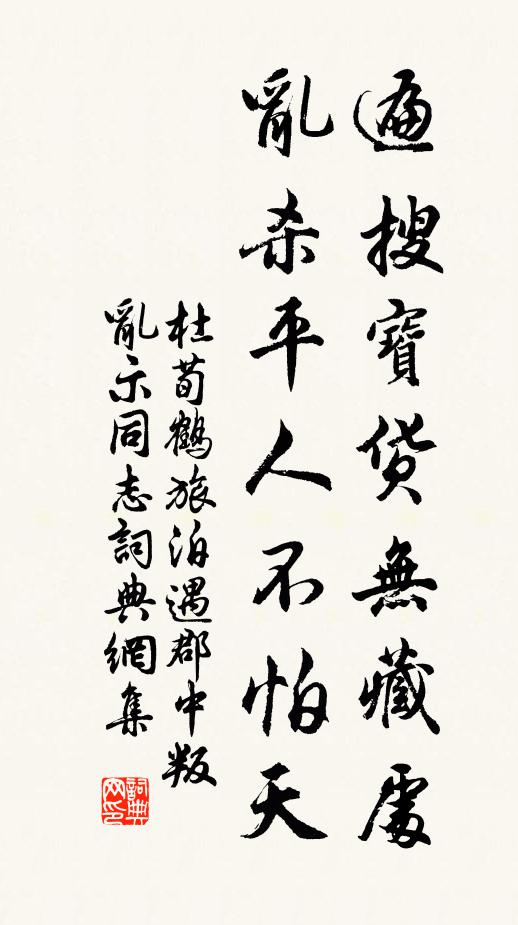 遍搜寶貨無藏處
亂杀平人不怕天
杜荀鶴旅泊遇郡中叛
亂示同志詞典網集
詞典
网印